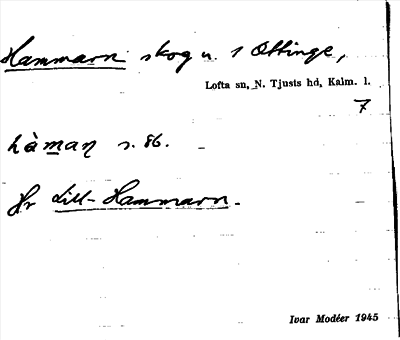 Hammarn skog u. 1 Öttinge,
Lofta sn, N. Tjusts hd, Kalm. l.
7
hàmaṇ s. 86.
Jfr Lill-Hammarn.
Ivar Modéer 1945